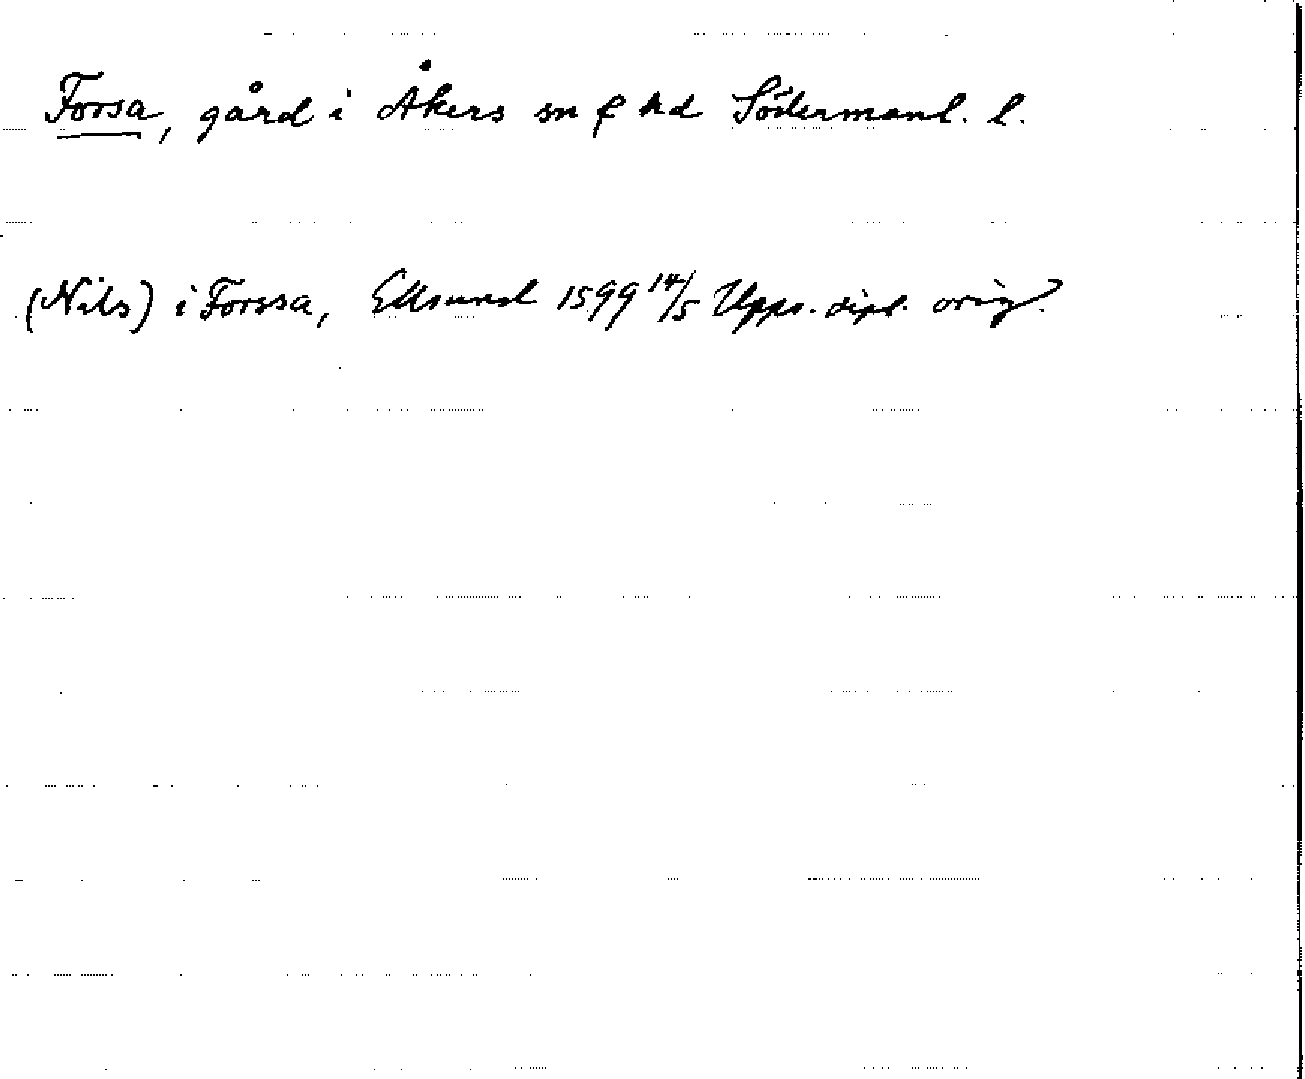 Forsa, gård i Åkers sn & hd Södermanl. l.
(Nils) i Forssa, Eksund 1599 14/5 Upps. dipl. orig.